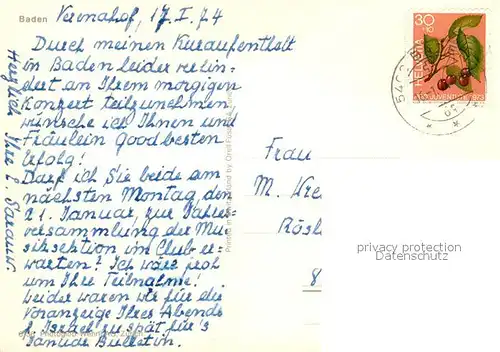 Baden
Verenahof, 17. I. 74
Durch meinen Kuraufenthalt
in Baden leider verhin-
dert an Ihrem morgigen
Konzert teilzunehmen
wünsche ich Ihnen und
Fräulein Good besten
Erfolg!
Darf ich Sie beide am
nächsten Montag, den
21. Januar, zur Jahres-
versammlung der Mu-
siksektion im Club er-
warten? Ich wäre froh
um Ihre Teilnahme!
Leider waren wir für die
Voranzeige Ihres Abends
f. Israel zu spät für's
Januar Bulletin.
Herzlich Ihre
Frau
M. Kre
Rösl
8
30
+10
HELVETIA
PRO JUVENTUTE 1973
privacy protection
Datenschutz